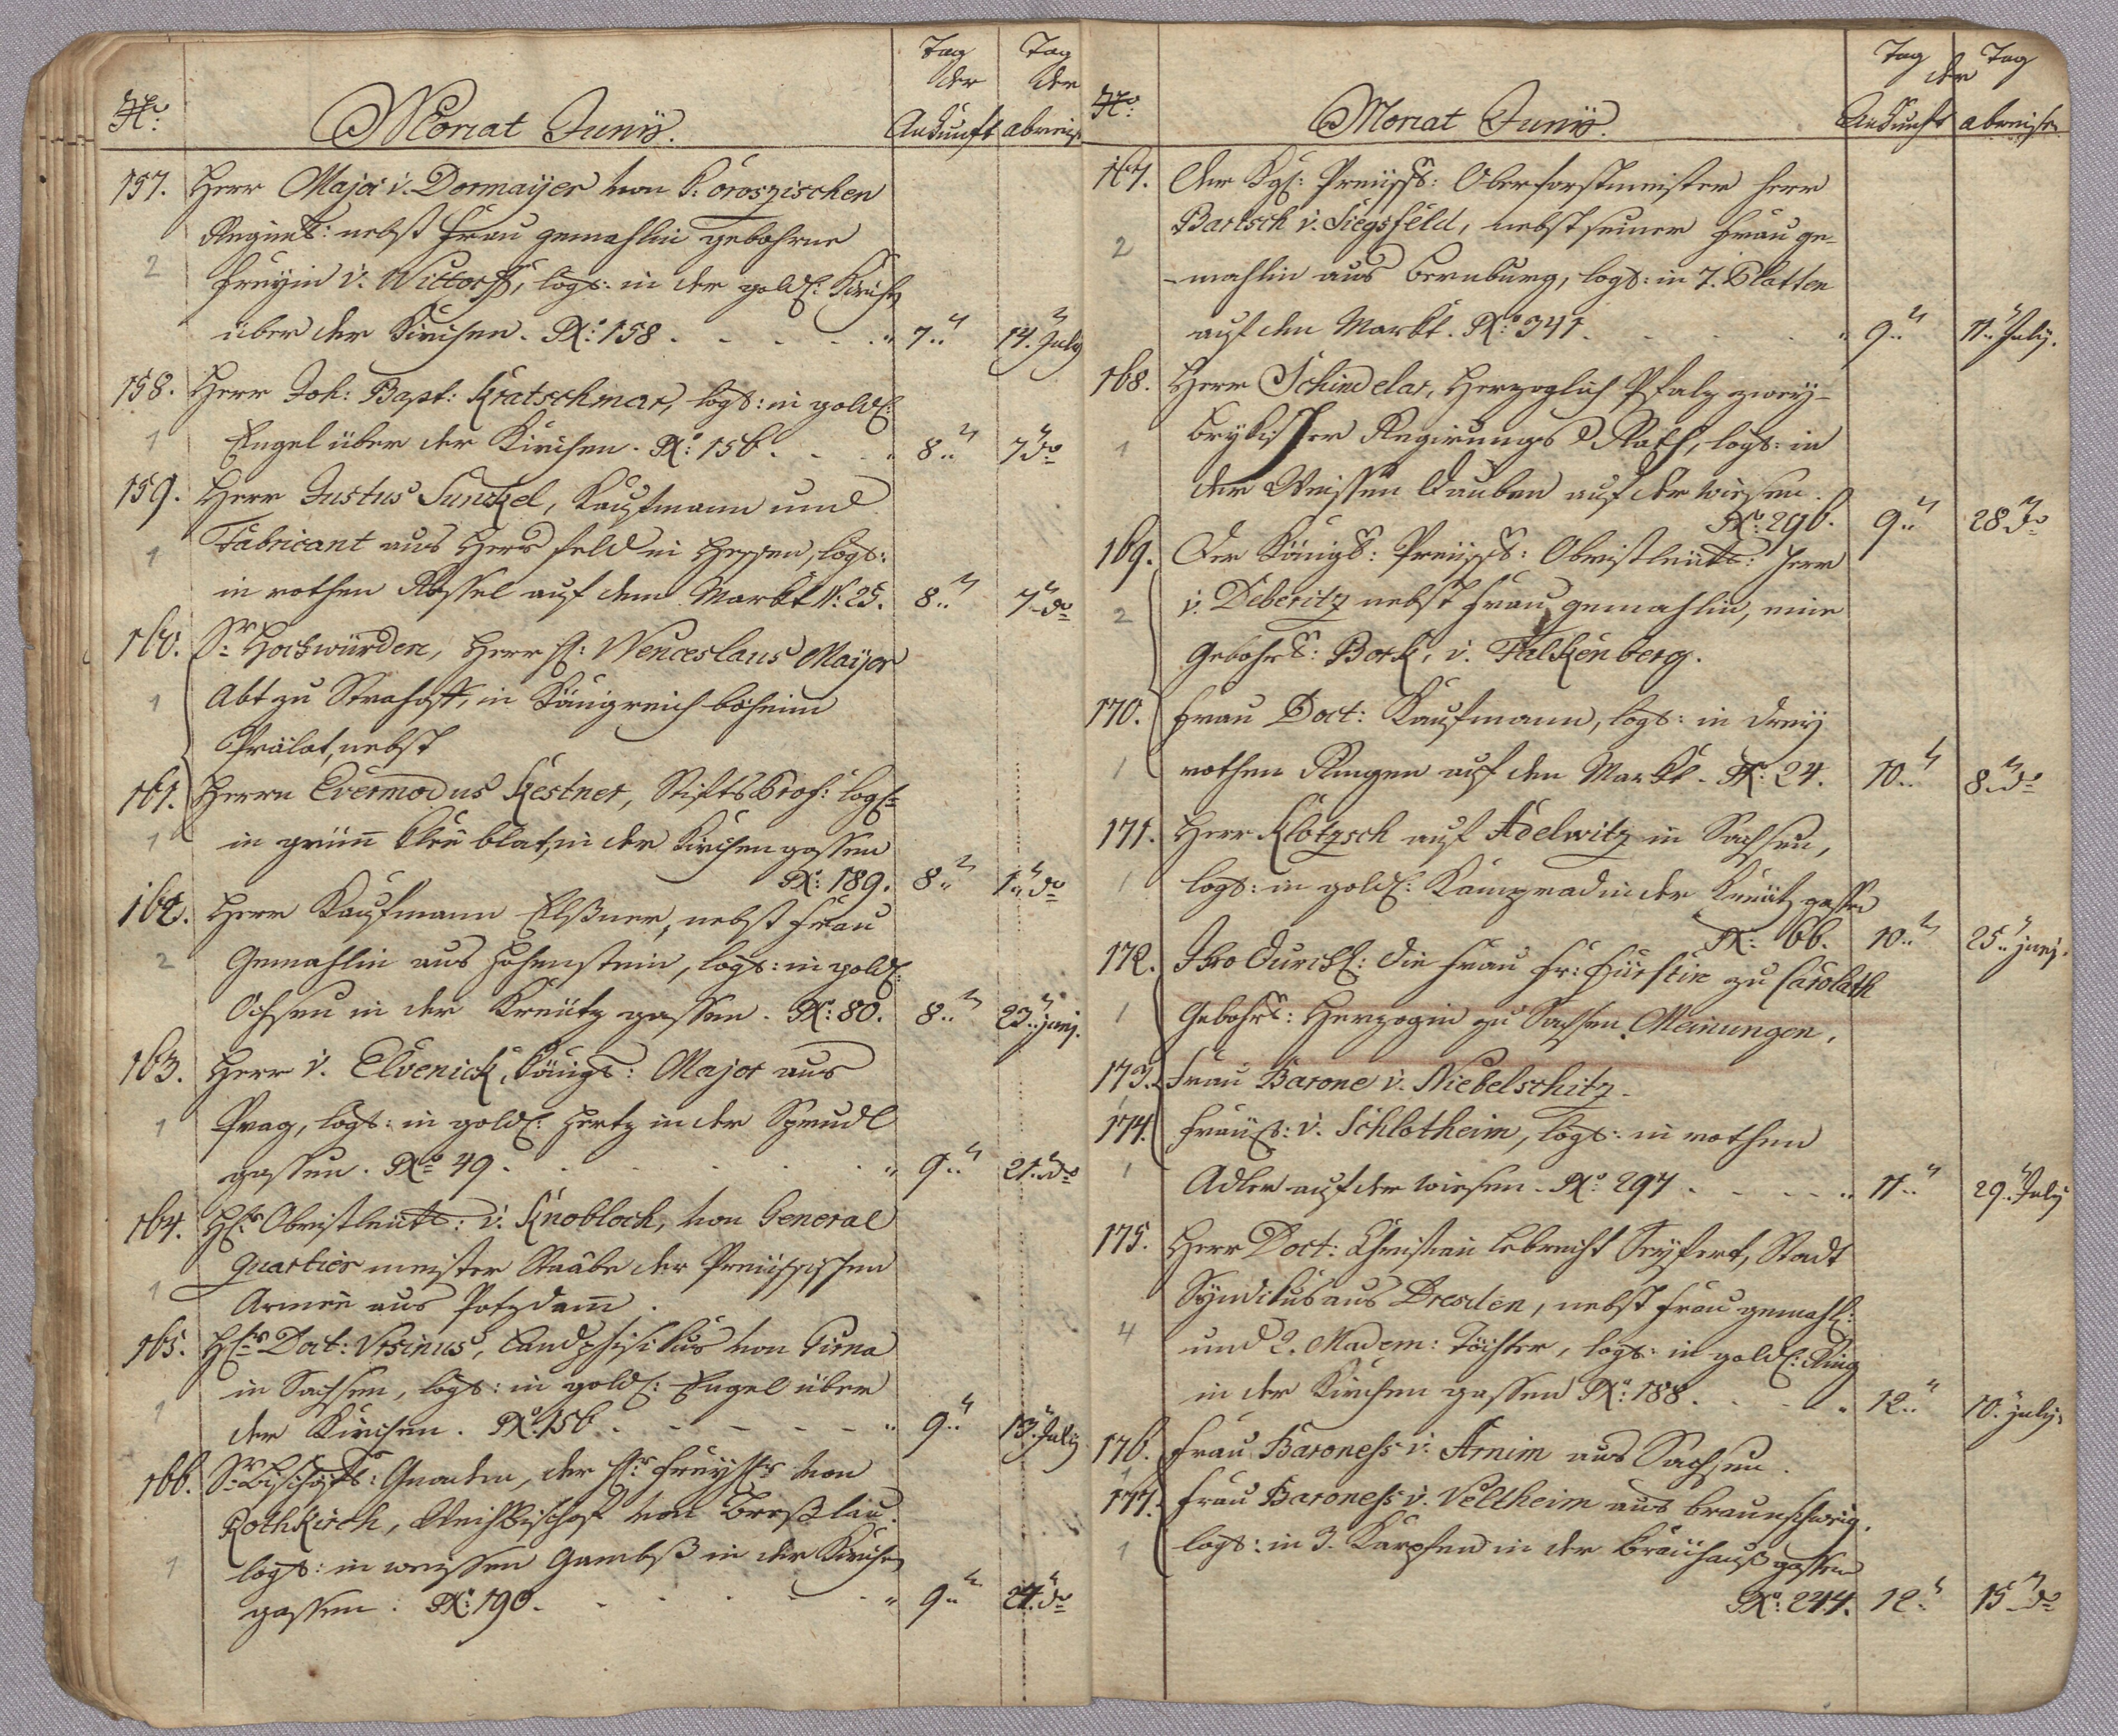 No:
Monat Junÿ.
Tag der Ankunft
Tag der abreise
157. Herr Major v. Dormaÿer von K: öroszischen
Regimts: nebst Frau gemahlin gebohrne
2 Freyin v. Wittorff, logt: in der gold: Kirche
über der Kirchen. No: 158 . . . . . " 7ten 14ten July
158. Herr Joh: Bapt: Kratschmar, logt: in gold:
1 Engel über der Kirchen. No: 156. . . . 8ten 7ten do
159. Herr Justus Sunckel, Kaufmann und
1 Fabricant aus Hersfeld in Hessen, logt:
in rothen Rössel auf dem Markt N: 25. 8ten 7ten do
160. Sr Hochwürden, Herr H: Wenceslaus Maÿer
1 Abt zu Strahoff, in Königreich böheim
Prälat, nebst
161. Herrn Evermodus Kestner, Stifts Prof: logt:
1 in grün Klee blat, in der Kirchen gassen
No: 189. 8ten 1ten do
162. Herr Kaufmann Elßner, nebst Frau
2 Gemahlin aus Hohenstein, logt: in gold:
Ochsen in der Kreutz gassen. No: 80. 8ten 23ten junj.
163. Herr v. Elvenick, Königl: Major aus
1 Prag, logt: in gold: Hertz in der Sprudl
gassen. No 49 . . . . . . " 9ten 21ten do
164. Hr: Obristleut: v. Knobloch, von General
quartier meister Staabe der Preussischen
1 Armee aus Potzdam.
165. Hr: Doct: Ursinus, Landphisikus von Pirna
1 in Sachsen, logt: in gold: Engel über
der Kirchen. No: 156. . . . . . " 9ten 13ten July
166. Sr Bischöfl: Gnaden, der Hr Freyhr von
Rothkirch, Weihbischof von Breßlau.
1 logt: in weissen Gambß in der Kirche
gassen. No: 190. . . . . . " 9ten 24ten do
No:
Monat Junÿ.
Tag der Ankunft
Tag abreise
167. Der Kgl: Preuss: Oberforstmeister Herr
2 Bartsch v. Siegsfeld, nebst seiner Frau ge-
-mahlin aus Bernburg, logt: in 7. Blatten
auf den Markt. No: 341. . . . . " 9ten 11ten July.
168. Herr Schindelar, Herzoglich Pfalz zwey-
1 brükischer Regirungs Rath, logt: in
der Weissen Tauben auf der Wiesen.
No: 296. 9ten 28ten do
169. Der Königl: Preuss: Obristleut: Herr
2 v. Deberitz nebst Frau gemahlin, eine
Gebohrl: Bork, v. Falkenberg.
170. Frau Doct: Kaufmann, logt: in dreÿ
1 rothen Ringen auf den Markt. No: 24. 10ten 8ten do
171. Herr Klötzsch auf Adelwitz in Sachsen,
1 logt: in gold: Kamprad in der Kreutz gassen
No: 66. 10ten 25ten junj.
172. Ihro Durchl: die Frau Fr: Fürstin zu Carolath
1 Gebohrl: Herzogin zu Sachsen Meinungen.
173. Frau Barone v. Niebelschitz.
1
174. Fräul: v. Schlotheim, logt: in rothen
1 Adler auf der Wiesen. No: 297 . . . . " 11ten 29ten July
175. Herr Doct: Christian Lebrecht Seyfert, Stadt
Syndikus aus Dresden, nebst Frau gemahl:
4 und 2. Madem: Töchter, logt: in gold: Ring
in der Kirchen gassen No: 188. . . . " 12ten 10ten july
176. Frau Baroness v. Arnim aus Sachsen.
1
177. Frau Baroness v. Veltheim aus Braunschweig.
1 logt: in 3. Karpfen in der Bräuhauß gassen
No: 244. 12ten 15ten do